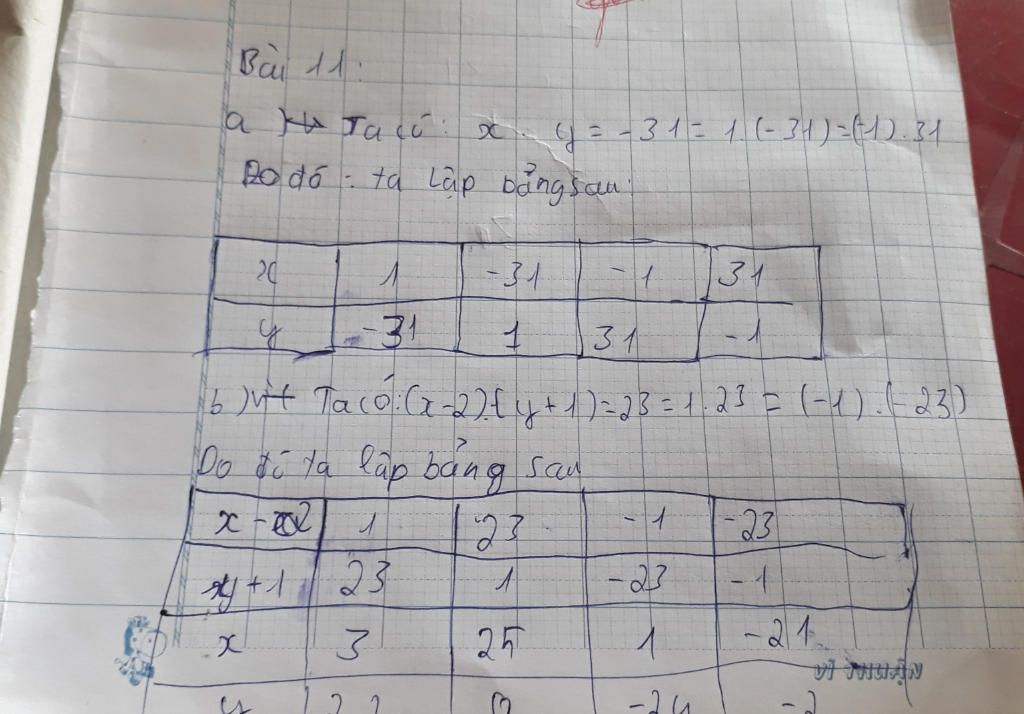 Bài 11:
a) Ta có: x . y = -31 = 1.(-31) = (-1).31
Do đó: ta lập bảng sau:
x 1 -31 -1 31
y -31 1 31 -1
b) Ta có: (x-2).(y+1)=23=1.23 = (-1).(-23)
Do đó ta lập bảng sau
x - 2 1 23 -1 -23
y+1 23 1 -23 -1
x 3 25 1 -21
VĨ THUẬN
y 22 0 -24 -2